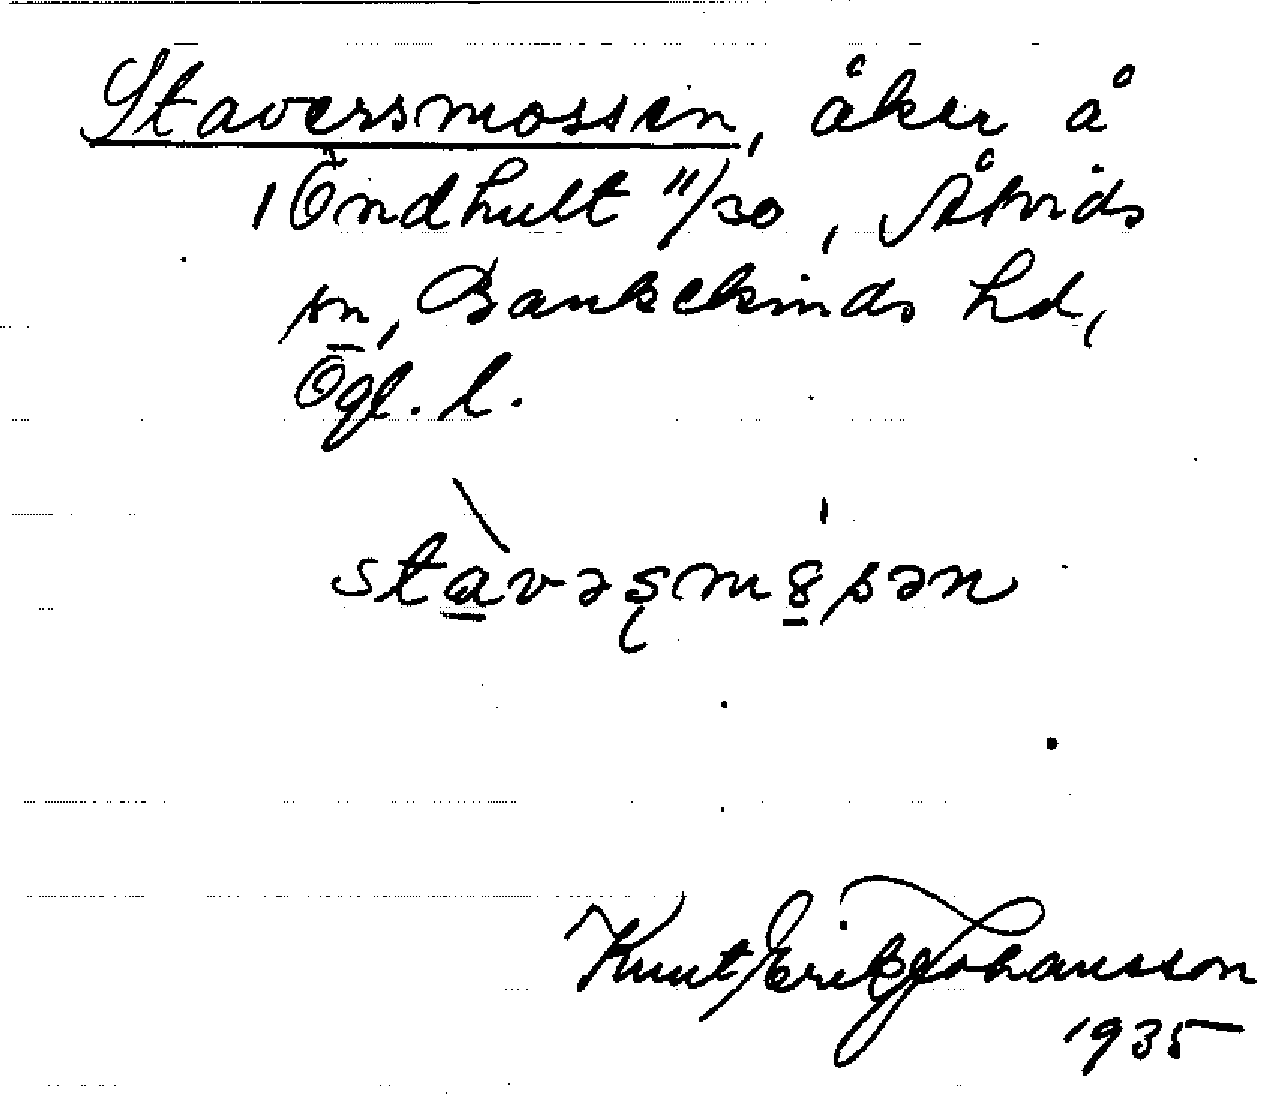 Staversmossen, åker å
Öndhult 11/30, Åtvids
sn, Bankekinds hd,
Ögl. l.
stàvəʂmȣsən
Knut Erik Johansson
1935